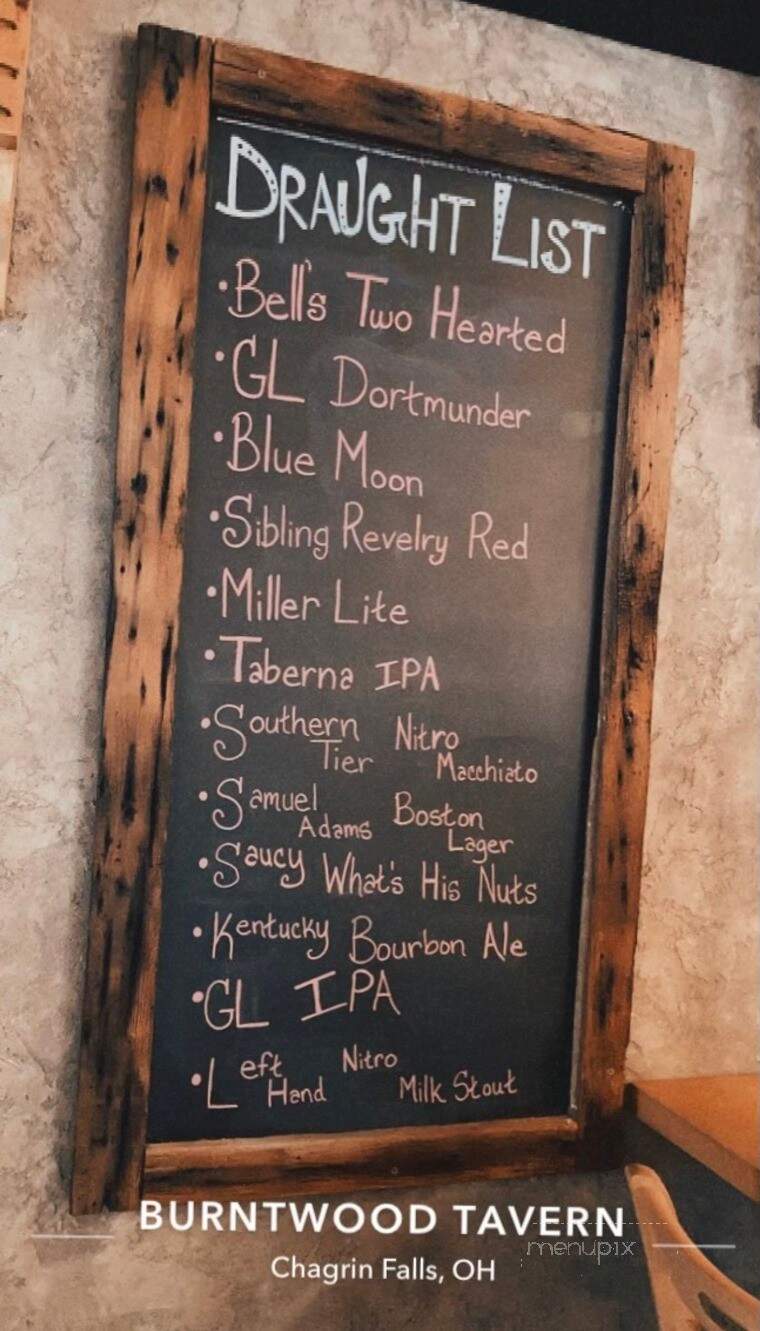 DRAUGHT LIST
• Bell's Two Hearted
• GL Dortmunder
• Blue Moon
• Sibling Revelry Red
• Miller Lite
• Taberna IPA
• Southern Tier Nitro Macchiato
• Samuel Adams Boston Lager
• Saucy What's His Nuts
• Kentucky Bourbon Ale
• GL IPA
• Left Hand Nitro Milk Stout
BURNTWOOD TAVERN
menupix
Chagrin Falls, OH